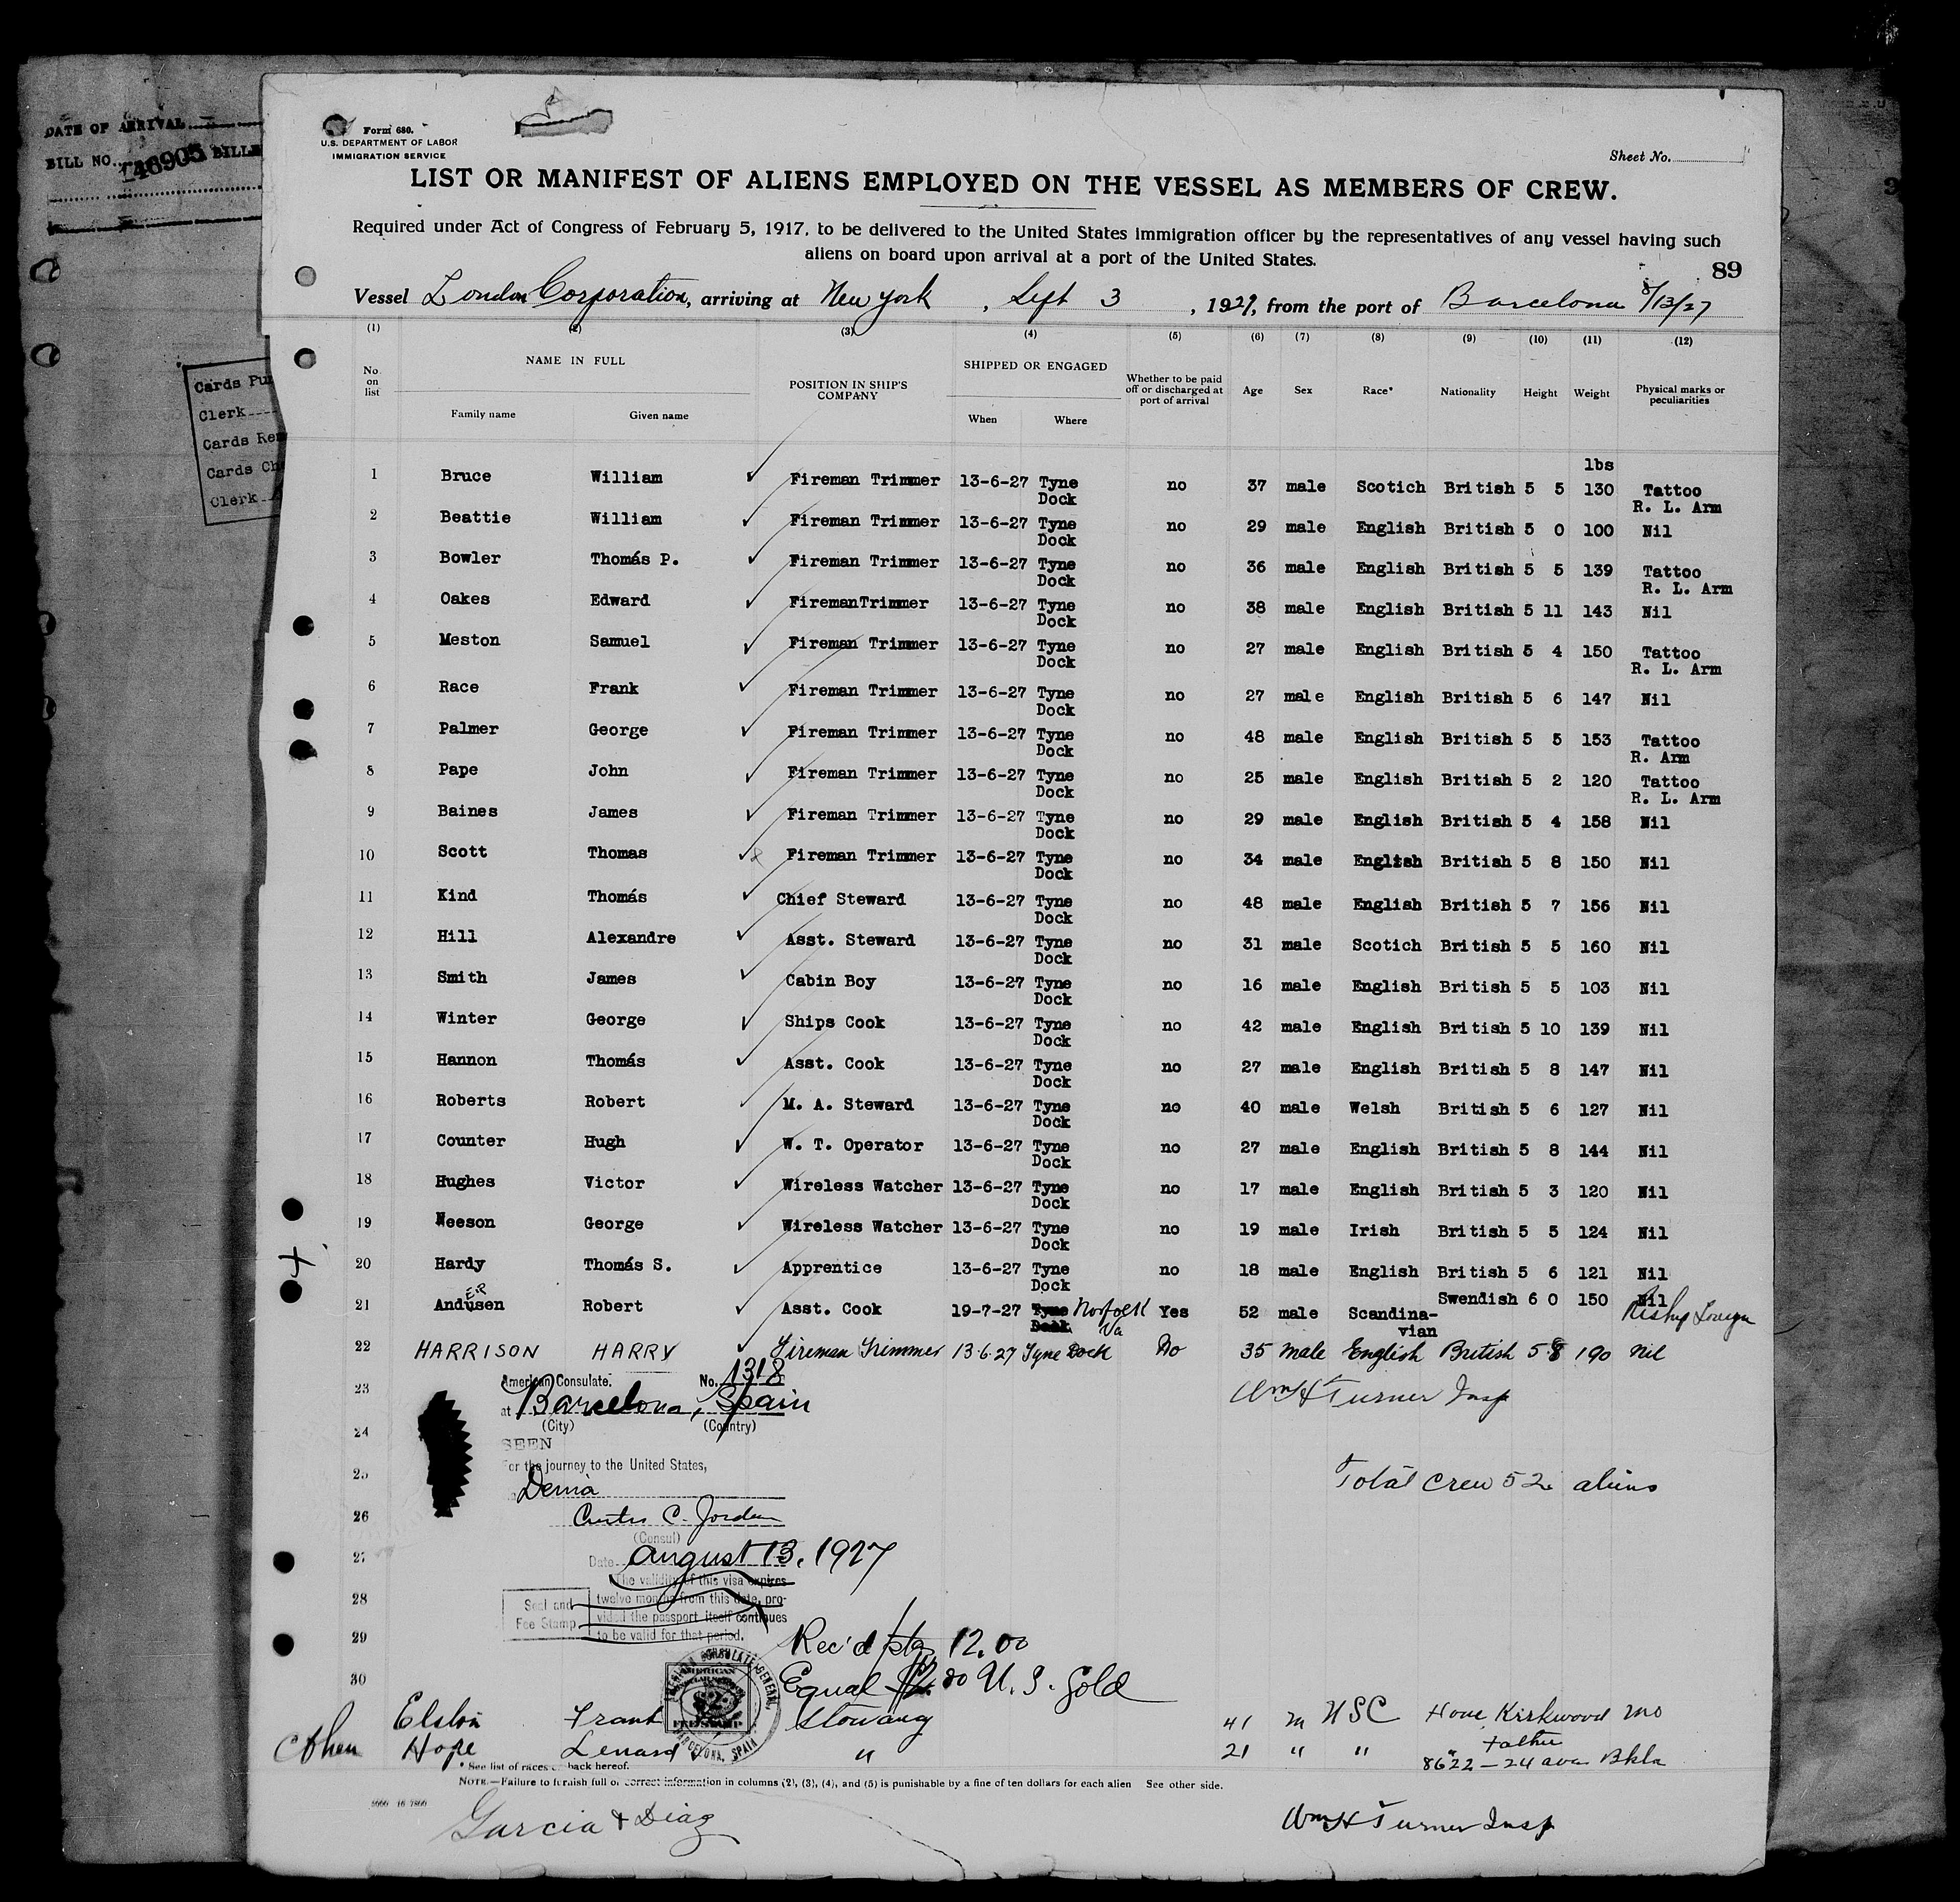 DATE OF ARRIVAL
BILL NO. 46905 BILLE
Cards Pu
Clerk
Cards Re
Cards Ch
Clerk
Form 680.
U.S. DEPARTMENT OF LABOR
IMMIGRATION SERVICE
Sheet No.
LIST OR MANIFEST OF ALIENS EMPLOYED ON THE VESSEL AS MEMBERS OF CREW.
Required under Act of Congress of February 5, 1917, to be delivered to the United States immigration officer by the representatives of any vessel having such
aliens on board upon arrival at a port of the United States.
89
Vessel London Corporation, arriving at New York, Sept 3, 1927, from the port of Barcelona 8/13/27
(1) (2) (3) (4) (5) (6) (7) (8) (9) (10) (11) (12)
No. on list NAME IN FULL Family name Given name POSITION IN SHIP'S COMPANY SHIPPED OR ENGAGED When Where Whether to be paid off or discharged at port of arrival Age Sex Race* Nationality Height Weight Physical marks or peculiarities
lbs
1 Bruce William Fireman Trimmer 13-6-27 Tyne Dock no 37 male Scotich British 5 5 130 Tattoo R. L. Arm
2 Beattie William Fireman Trimmer 13-6-27 Tyne Dock no 29 male English British 5 0 100 Nil
3 Bowler Thomás P. Fireman Trimmer 13-6-27 Tyne Dock no 36 male English British 5 5 139 Tattoo R. L. Arm
4 Oakes Edward FiremanTrimmer 13-6-27 Tyne Dock no 38 male English British 5 11 143 Nil
5 Meston Samuel Fireman Trimmer 13-6-27 Tyne Dock no 27 male English British 5 4 150 Tattoo R. L. Arm
6 Race Frank Fireman Trimmer 13-6-27 Tyne Dock no 27 male English British 5 6 147 Nil
7 Palmer George Fireman Trimmer 13-6-27 Tyne Dock no 48 male English British 5 5 153 Tattoo R. Arm
8 Pape John Fireman Trimmer 13-6-27 Tyne Dock no 25 male English British 5 2 120 Tattoo R. L. Arm
9 Baines James Fireman Trimmer 13-6-27 Tyne Dock no 29 male English British 5 4 158 Nil
10 Scott Thomas Fireman Trimmer 13-6-27 Tyne Dock no 34 male English British 5 8 150 Nil
11 Kind Thomás Chief Steward 13-6-27 Tyne Dock no 48 male English British 5 7 156 Nil
12 Hill Alexandre Asst. Steward 13-6-27 Tyne Dock no 31 male Scotich British 5 5 160 Nil
13 Smith James Cabin Boy 13-6-27 Tyne Dock no 16 male English British 5 5 103 Nil
14 Winter George Ships Cook 13-6-27 Tyne Dock no 42 male English British 5 10 139 Nil
15 Hannon Thomás Asst. Cook 13-6-27 Tyne Dock no 27 male English British 5 8 147 Nil
16 Roberts Robert M. A. Steward 13-6-27 Tyne Dock no 40 male Welsh British 5 6 127 Nil
17 Counter Hugh W. T. Operator 13-6-27 Tyne Dock no 27 male English British 5 8 144 Nil
18 Hughes Victor Wireless Watcher 13-6-27 Tyne Dock no 17 male English British 5 3 120 Nil
19 Neeson George Wireless Watcher 13-6-27 Tyne Dock no 19 male Irish British 5 5 124 Nil
20 Hardy Thomás S. Apprentice 13-6-27 Tyne Dock no 18 male English British 5 6 121 Nil
21 Andusen Robert Asst. Cook 19-7-27 Tyne Dock Norfolk Va Yes 52 male Scandina-vian Swedish 6 0 150 Nil Reship Foreign
22 HARRISON HARRY Fireman Trimmer 13-6-27 Tyne Dock No 35 male English British 5 8 190 Nil
23 Wm H Turner Insp
American Consulate. No. 1318
at Barcelona, Spain
(City) (Country)
24
SEEN
For the journey to the United States,
25 Total crew 52 aliens
Denia
26 Curtis C. Jordan
(Consul)
27 Date August 13, 1927
The validity of this visa expires
28 twelve months from this date, pro-
Seal and Fee Stamp
vided the passport itself continues
to be valid for that period.
29 Rec'd ptas 12.00
30 Equal $2.00 U.S. Gold
AMERICAN CONSULATE GENERAL BARCELONA, SPAIN
Elston Frank Stoway 41 m USC Home Kirkwood Mo
Cohen Hope Lenard " 21 " " Father 8622-24 ave Bkln
* See list of races on back hereof.
NOTE.—Failure to furnish full or correct information in columns (2), (3), (4), and (5) is punishable by a fine of ten dollars for each alien See other side.
Garcia & Diaz
Wm H Turner Insp